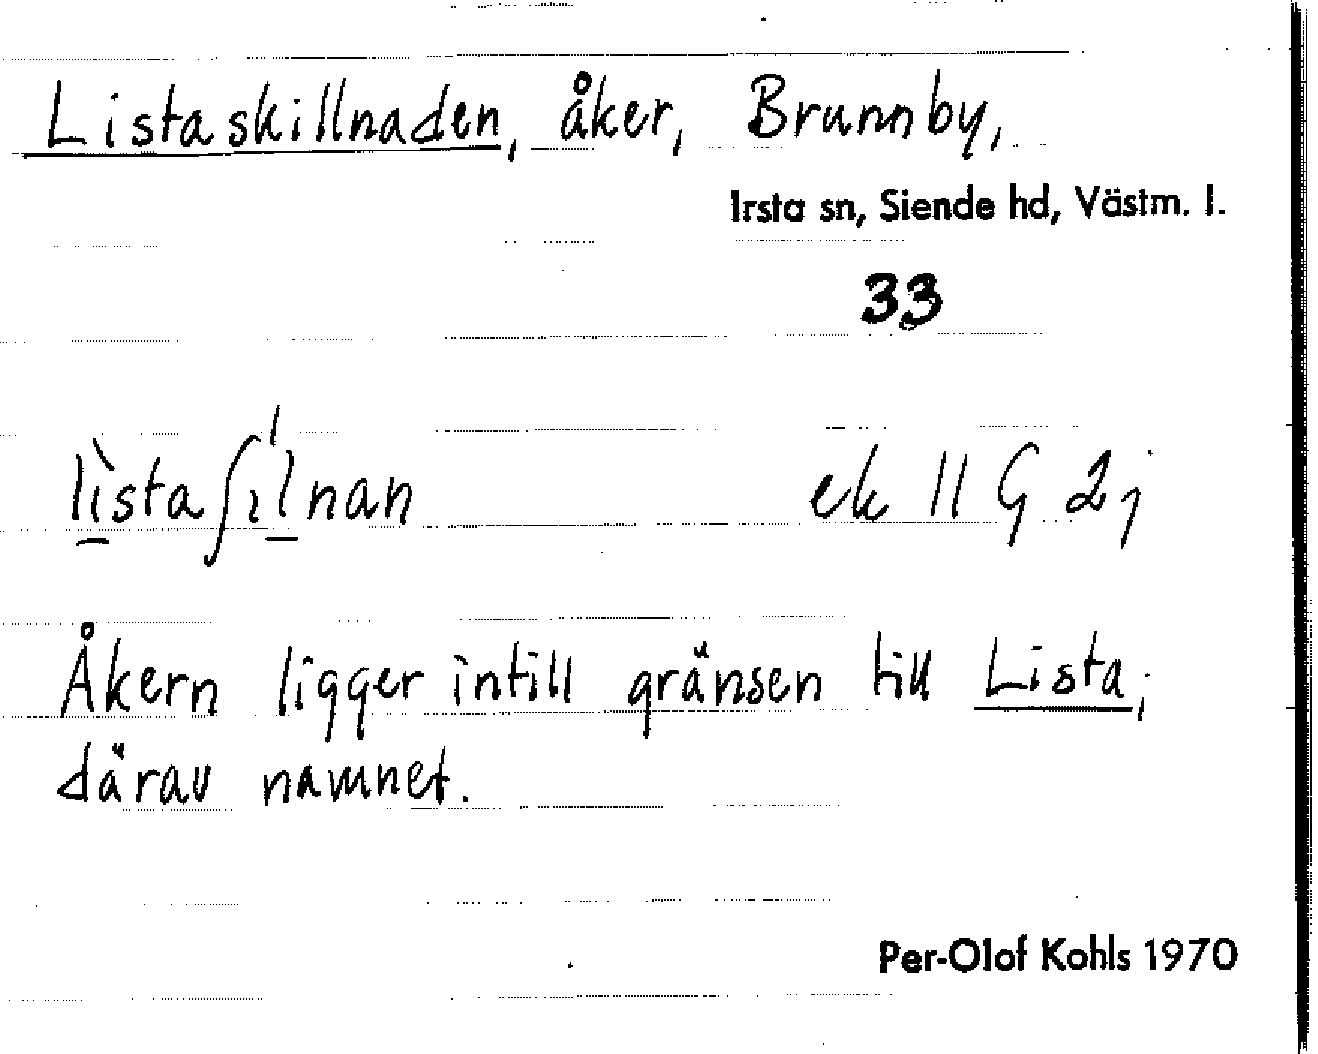 Listaskillnaden, åker, Brunnby,
Irsta sn, Siende hd, Västm. l.
33
lìstaʃıĺnan ek 11 G 2j
Åkern ligger intill gränsen till Lista,
därav namnet.
Per-Olof Kohls 1970